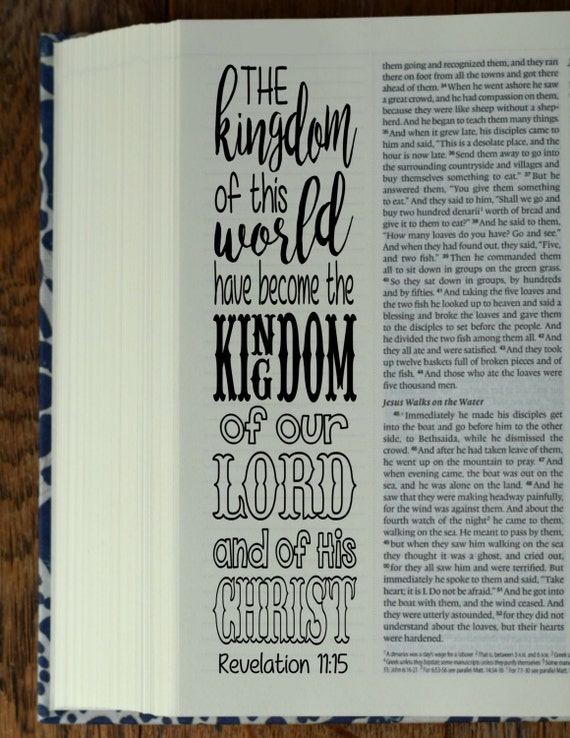 THE
kingdom
of this
world
have become the
KINGDOM
of our
LORD
and of His
CHRIST
Revelation 11:15
them going and recognized them, and they ran
there on foot from all the towns and got there
ahead of them. 34 When he went ashore he saw
a great crowd, and he had compassion on them,
because they were like sheep without a shep-
herd. And he began to teach them many things.
35 And when it grew late, his disciples came to
him and said, "This is a desolate place, and the
hour is now late. 36 Send them away to go into
the surrounding countryside and villages and
buy themselves something to eat." 37 But he
answered them, "You give them something
to eat." And they said to him, "Shall we go and
buy two hundred denarii¹ worth of bread and
give it to them to eat?" 38 And he said to them,
"How many loaves do you have? Go and see."
And when they had found out, they said, "Five,
and two fish." 39 Then he commanded them
all to sit down in groups on the green grass.
40 So they sat down in groups, by hundreds
and by fifties. 41 And taking the five loaves and
the two fish he looked up to heaven and said a
blessing and broke the loaves and gave them
to the disciples to set before the people. And
he divided the two fish among them all. 42 And
they all ate and were satisfied. 43 And they took
up twelve baskets full of broken pieces and of
the fish. 44 And those who ate the loaves were
five thousand men.
Jesus Walks on the Water
45 Immediately he made his disciples get
into the boat and go before him to the other
side, to Bethsaida, while he dismissed the
crowd. 46 And after he had taken leave of them,
he went up on the mountain to pray. 47 And
when evening came, the boat was out on the
sea, and he was alone on the land. 48 And he
saw that they were making headway painfully,
for the wind was against them. And about the
fourth watch of the night² he came to them,
walking on the sea. He meant to pass by them,
49 but when they saw him walking on the sea
they thought it was a ghost, and cried out,
50 for they all saw him and were terrified. But
immediately he spoke to them and said, "Take
heart; it is I. Do not be afraid." 51 And he got into
the boat with them, and the wind ceased. And
they were utterly astounded, 52 for they did not
understand about the loaves, but their hearts
were hardened.
¹ A denarius was a day's wage for a laborer ² That is, between 3 A.M. and 6 A.M.